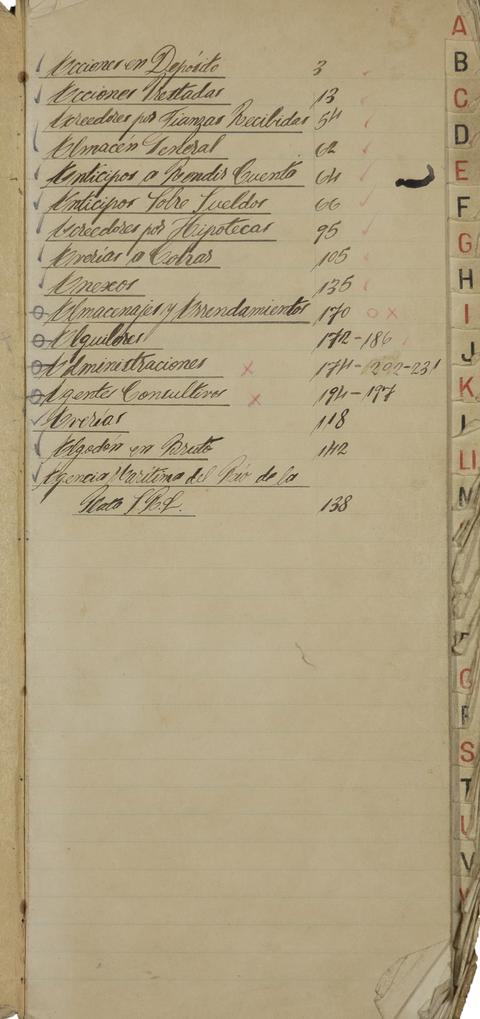 Acciones en Depósito 3
Acciones Prestadas 13
Acreedores por Fianzas Recibidas 54
Almacén General 62
Anticipos a Rendir Cuenta 64
Anticipos Sobre Sueldos 66
Acreedores por Hipotecas 95
Averías a Cobrar 105
Anexos 135
Almacenajes y Arrendamientos 170
Alquileres 172-186
Administraciones 174-292-231
Agentes Consultivos 194-197
Averías 118
Algodón en Bruto 142
Agencia Marítima del Río de la
Plata S.R.L. 138
A
B
C
D
E
F
G
H
I
J
K
L
Ll
M
F
Q
R
S
T
U
V